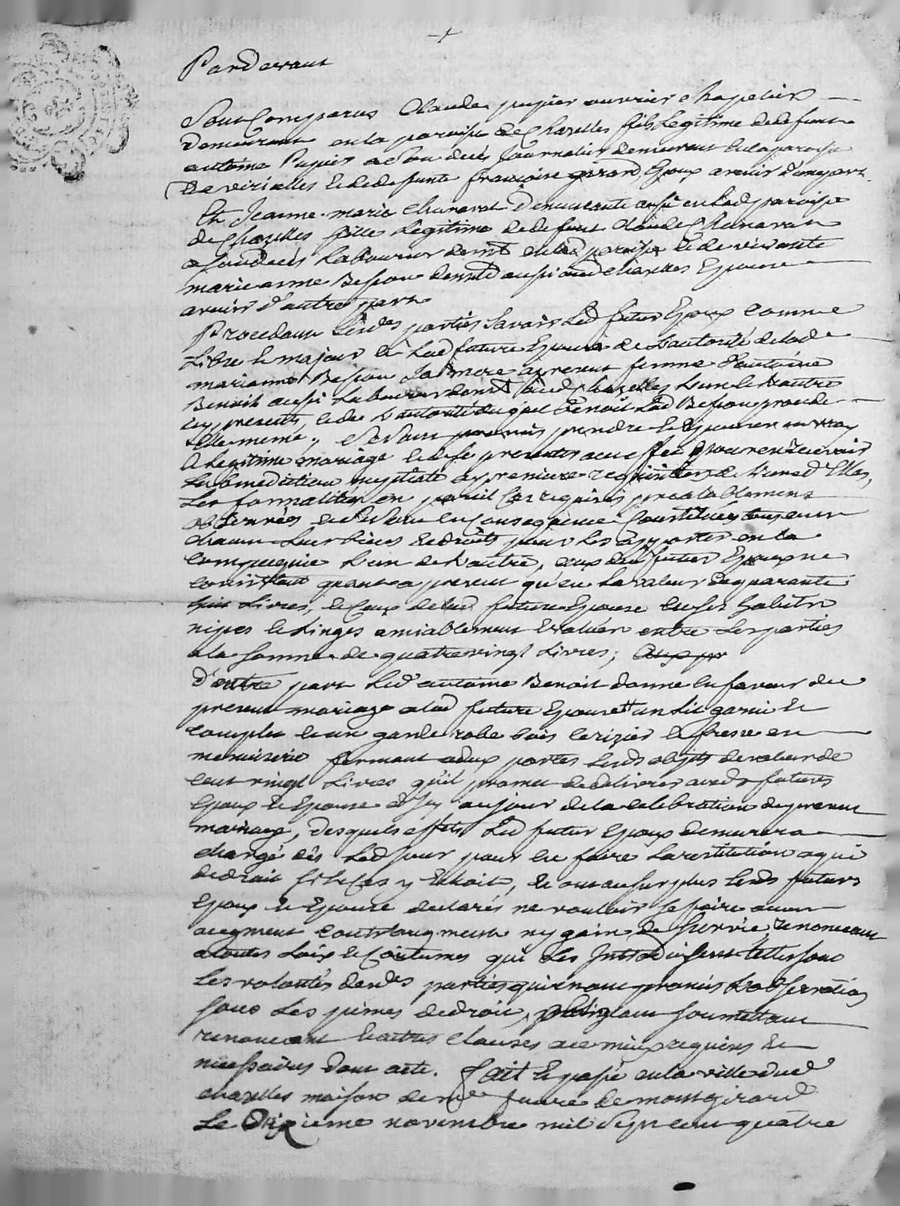 Pardevant
Sont Comparus Claude pupier ouvrier chapelier
Demeurant en la paroisse de Chazelles fils Legitime de defunt
antoine Pupier a son deces Journalier demeurant en la paroisse
De viricelles et de defunte françoise girard Epoux avenir d'une part
Et Jeanne marie Chanavat Demeurante aussi en lad paroisse
de Chazelles fille Legitime de defunt Claude Chanavat
a son deces Laboureur demt en lad paroisse et de vivante
marie anne Besson demt aussi aud Chazelles Epouse
avenir d'autre part
Procedant Lesdes parties Savoir Led futur Epoux comme
Libre et majeur et Lad future Epouse de L'autorité de lad
marianne Besson Sa mere a present femme d'antoine
Benoit aussi Laboureur demt aud Chazelles L'un et L'autre
icy presents, et de L'autorité duquel Benoit Lad Besson procede
Elle meme, Se Sont promis prendre et Epouser en vray
& Legitime mariage et de se presenter a cet effet pour en recevoir
La benediction nuptiale a premiere requisition de L'un ou d'Elles,
Les formalités en pareil Cas requises prealablement
observées, et Se Sont en Consequence Constitués tous un
chacun Leurs biens et droits pour Les apporter en la
compagnie L'un de L'autre, ceux dud futur Epoux ne
consistant quant a present qu'en la valeur de quarante
huit Livres, et Ceux de lad future Epouse en ses habits
nipes et Linges amiablement Evalués entre Les parties
a la Somme de quatrevingt Livres;
D'autre part Led antoine Benoit donne en faveur du
present mariage a lad future Epouse un Lit garni et
complet et un garderobe bois cerizier et fresne en
menuiserie fermant a deux portes Lesds objets de valeur de
cent vingt Livres qu'il promet de delivrer auxds futurs
Epoux et Epouse au jour de la celebration du present
mariage, Desquels effets Led futur Epoux demeurera
chargé dés Led jour pour en faire La restitution a qui
de droit Si le Cas y Echoit, et ont au surplus Lesds futurs
Epoux et Epouse declarés ne vouloir Se faire aucun
augment contraugment ny gain de Survie renoncant
a toutes Loix et Coutumes qui Les Introduisent telles sont
Les volontés desdes parties qui en ont promis L'observation
sous Les peines de droit, obligeant Soumettant
renoncant et autres Clauses au mieux requises et
necessaires Dont acte. Fait et passé en la ville dud
chazelles maison de me de montgirard
Le Dixieme novembre mil Sept cent quatre